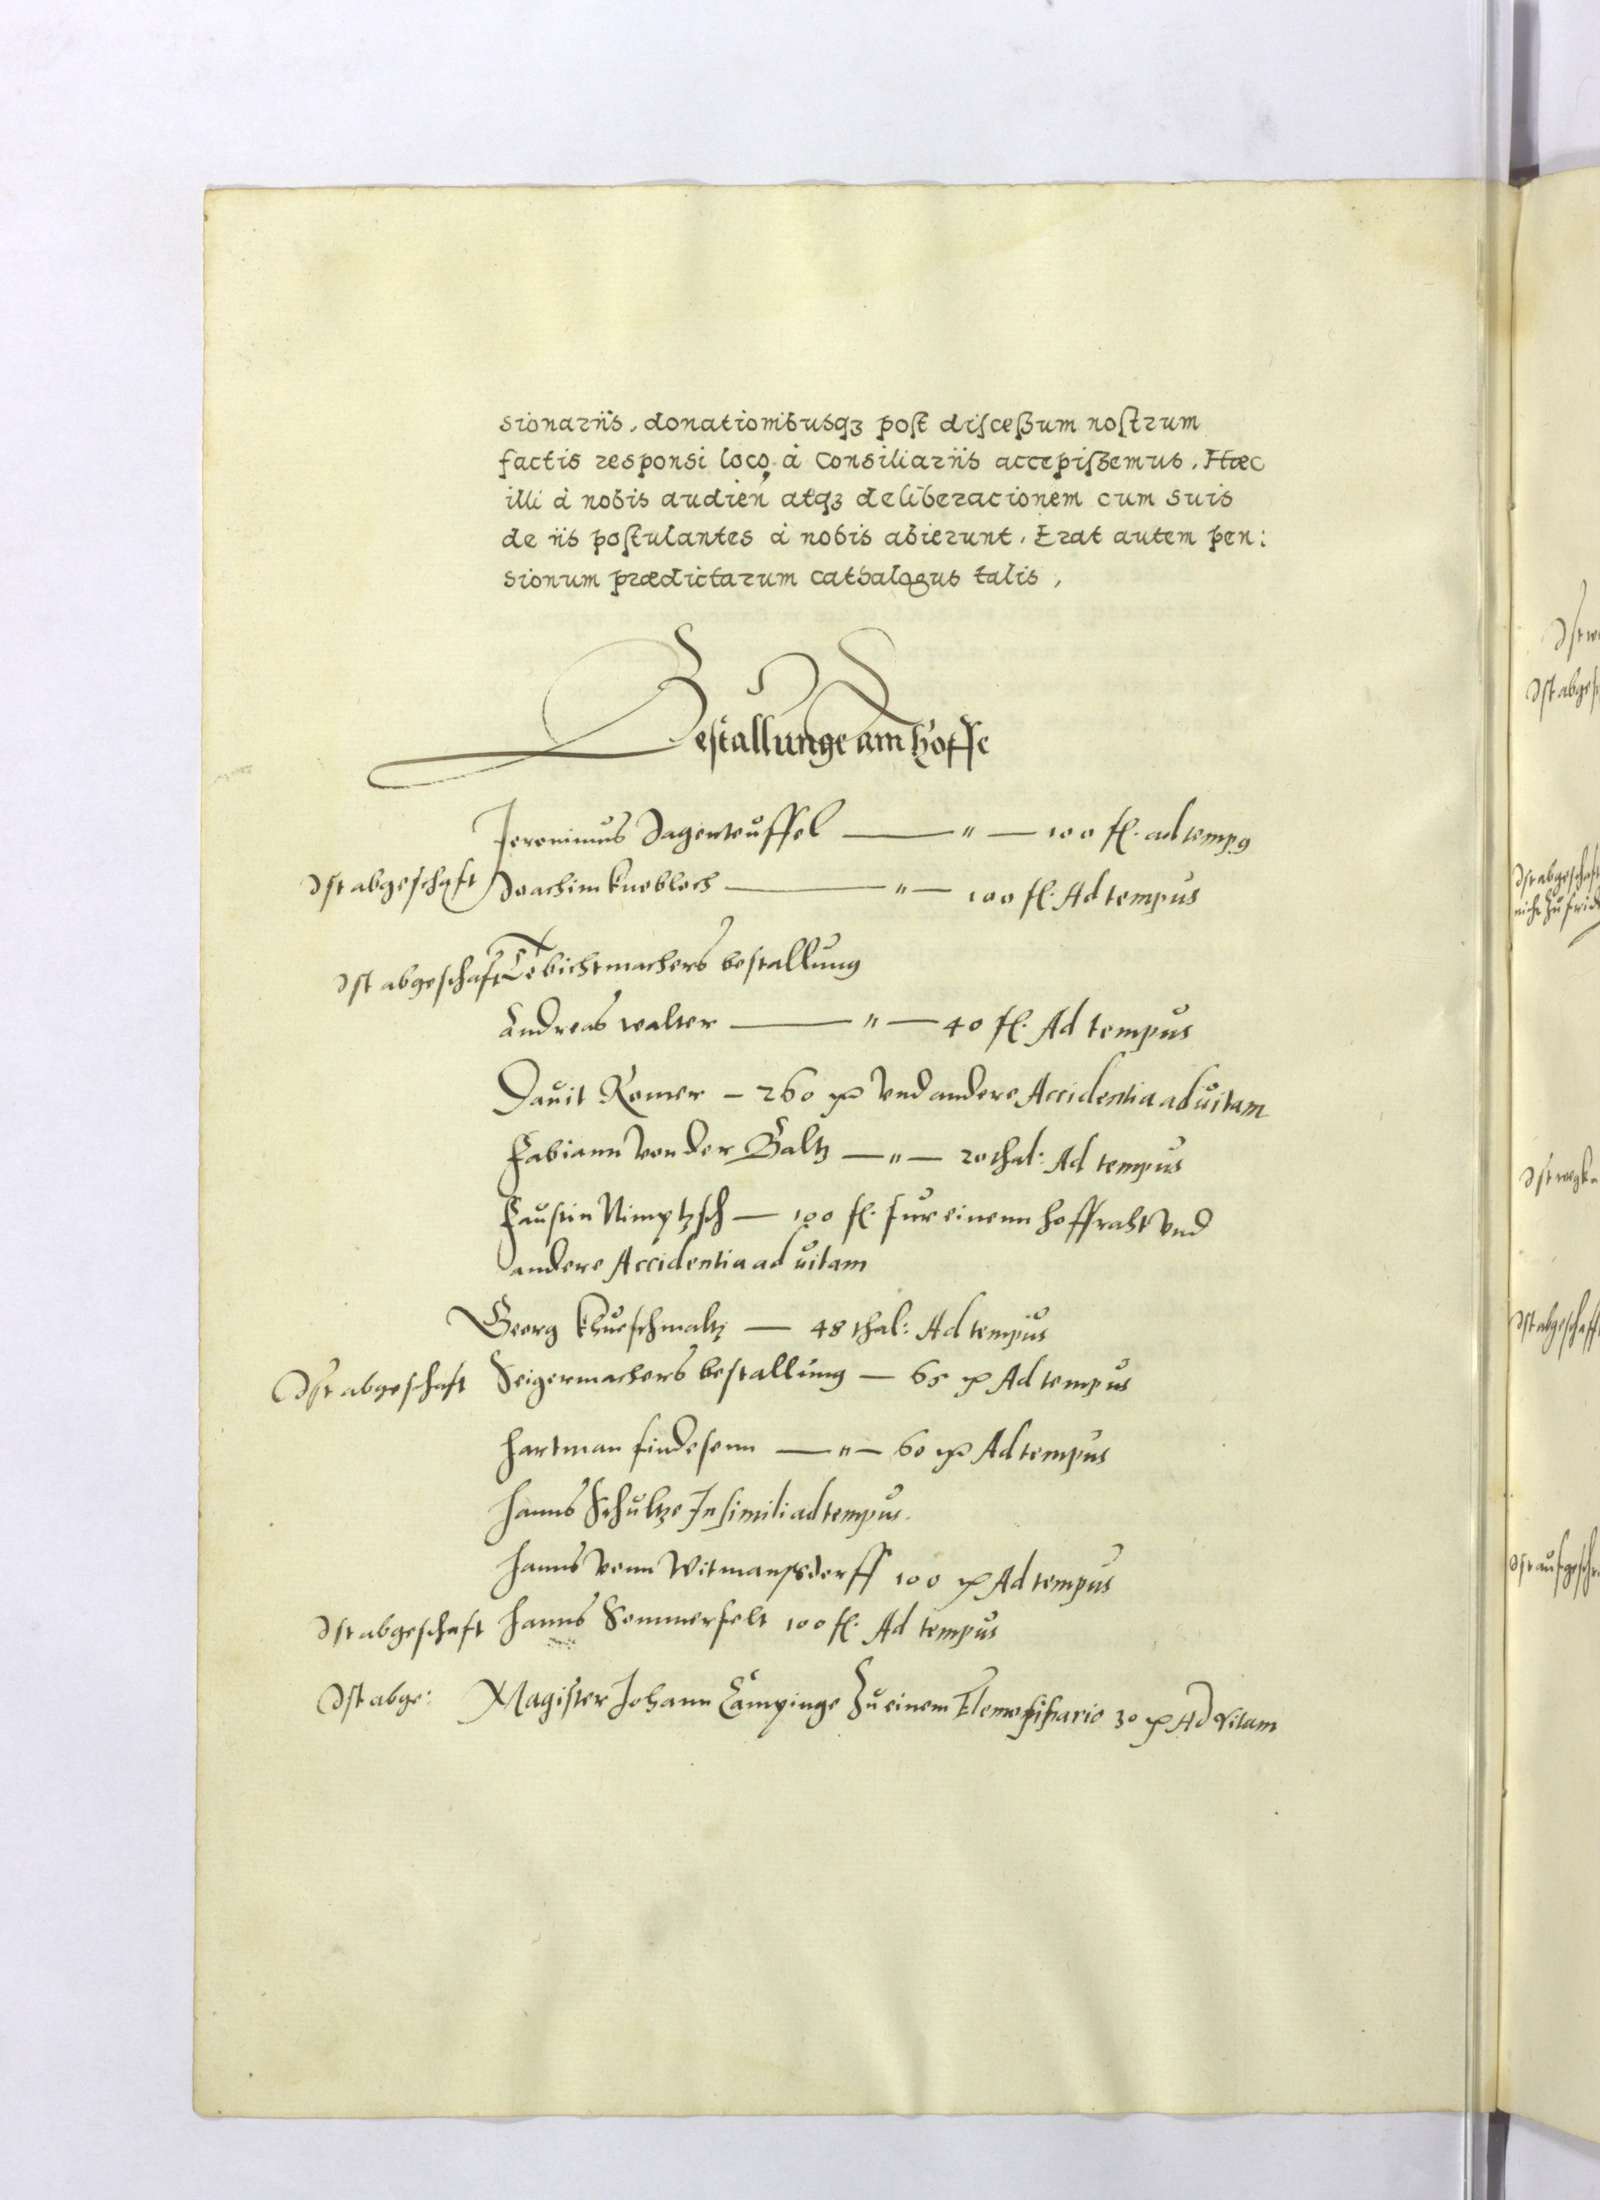 sionariis, donationibusqʒ post discessum nostrum
factis responsi loco à Consiliariis accepissemus. Hæc
illi à nobis audien atqʒ deliberacionem cum suis
de iis postulantes à nobis abierunt. Erat autem pen:
sionum prædictarum cathalogus talis,
Bestallunge am hoffe
Jeronimus Dagenteuffel — " — 100 fl. ad tempꝰ
Ist abgeschaft Joachim knebloch — " — 100 fl: Ad tempus
Ist abgeschaft Tebichtmachers bestallung
Andreas walter — " — 40 fl. Ad tempus
Dauit Romer — 260 mr Vnd andere Accidentia ad uitam
Fabiann Von der Baltz — " — 20 thal: Ad tempus
Faustin Nimptzsch — 100 fl. fur einenn hoffraht Vnd
andere Accidentia ad uitam
Georg khueschmaltz — 48 thal: Ad tempus
Ist abgeschaft Seigermachers bestallung — 65 mr Ad tempus
Hartman findesenn — " — 60 mr Ad tempus
Hanns Schultze In simili ad tempus.
Hanns Venn Witmanssderff 100 mr Ad tempus
Ist abgeschaft Hanns Sommerfelt 100 fl. Ad tempus
Ist abge: Magister Johann Campinge Zu einem Elemosinario 30 mr Ad vitam
Ist abgesc
Ist abgeschaft
nicht zu frid
Ist abgeschafft